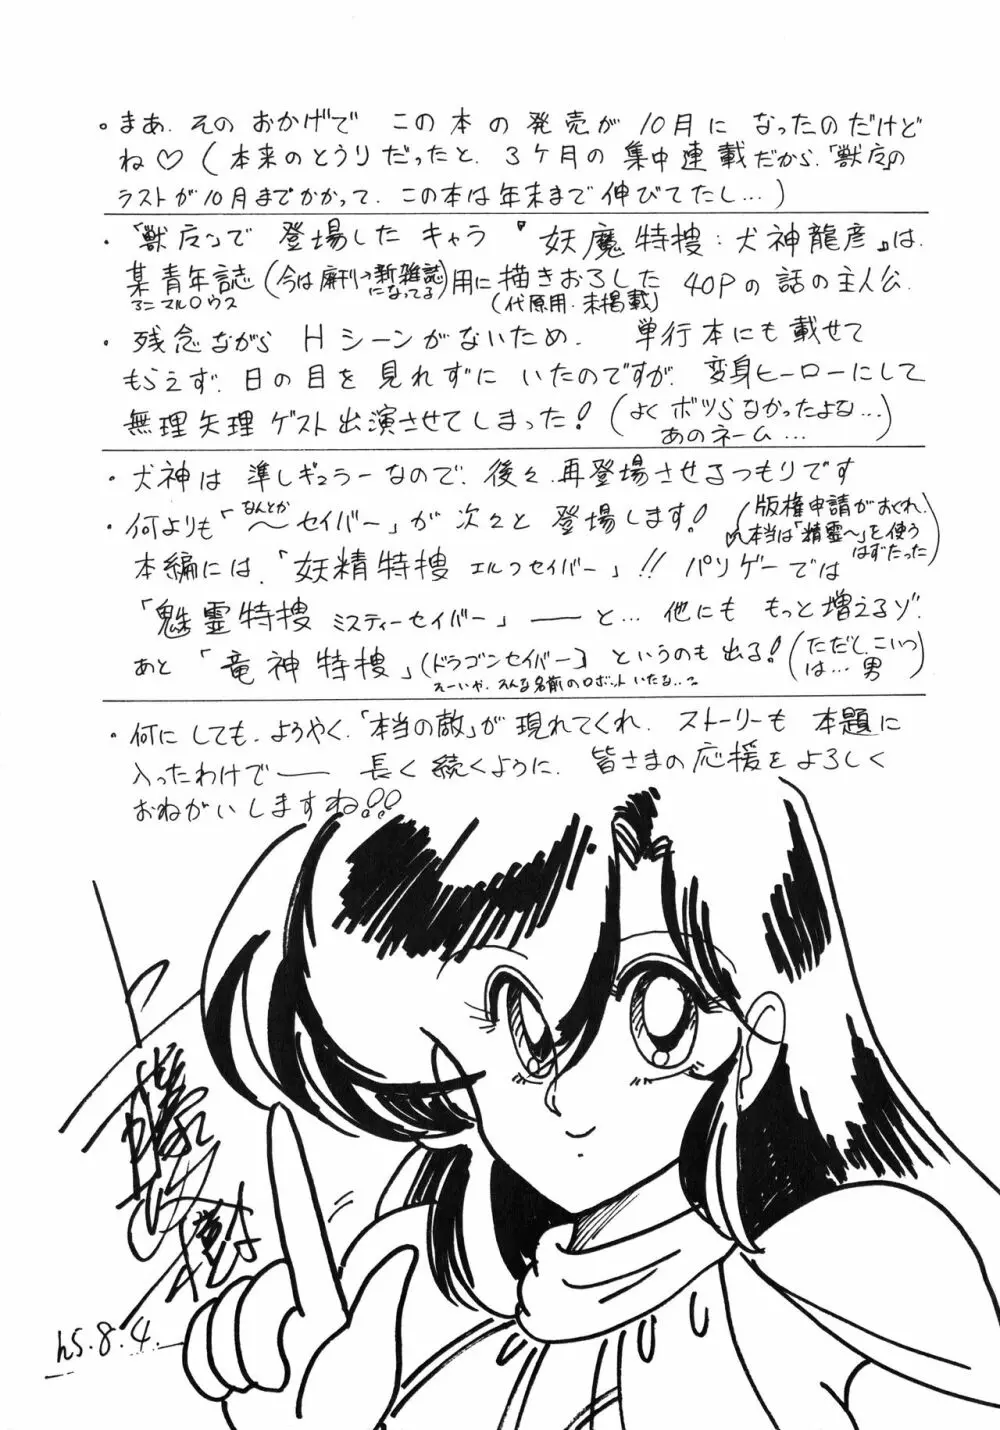 。まあ、そのおかげで この本の発売が 10月に なったのだけど
ね♡(本来のとうりだったと、3ヶ月の集中連載だから、「獣
ラストが10月までかかって、この本は年末まで伸びてたし…)
・ で 登場した キャラ 『妖魔特捜：犬神龍彦』は、
某青年誌(今は廃刊→新雑誌になってる)用に描きおろした 40Pの話の主人公.
アニマルハウス
(代原用・未掲載)
・残念ながら Hシーンがないため、 単行本にも載せて
もらえず、日の目を見れずに いたのですが、変身ヒーローにして
無理矢理 ゲスト出演させてしまった!(よくボツらなかったよな…
あのネーム…)
・犬神は 準レギュラーなので、後々、再登場させるつもりです
・何よりも「〜セイバー」が次々と 登場します!
なんとか
(版権申請がおくれ、
本当は「精霊〜」を使う
はずだった)
本編には、「妖精特捜 エルフセイバー」!! パソゲーでは
「魅霊特捜 ミスティーセイバー」――と… 他にも もっと増えるゾ.
あと「竜神特捜」(ドラゴンセイバー) というのも出る!(ただし、こいつ
は…男)
えーいや、そんな名前のロボットいたな..?
・何にしても、ようやく、「本当の敵」が現れてくれ、ストーリーも 本題に
入ったわけで―― 長く続くように、皆さまの応援をよろしく
おねがいしますね!!
上藤政樹
h5.8.4.